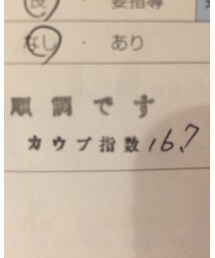 良 ・ 要指導
なし ・ あり
順調です
カウプ指数 16.7